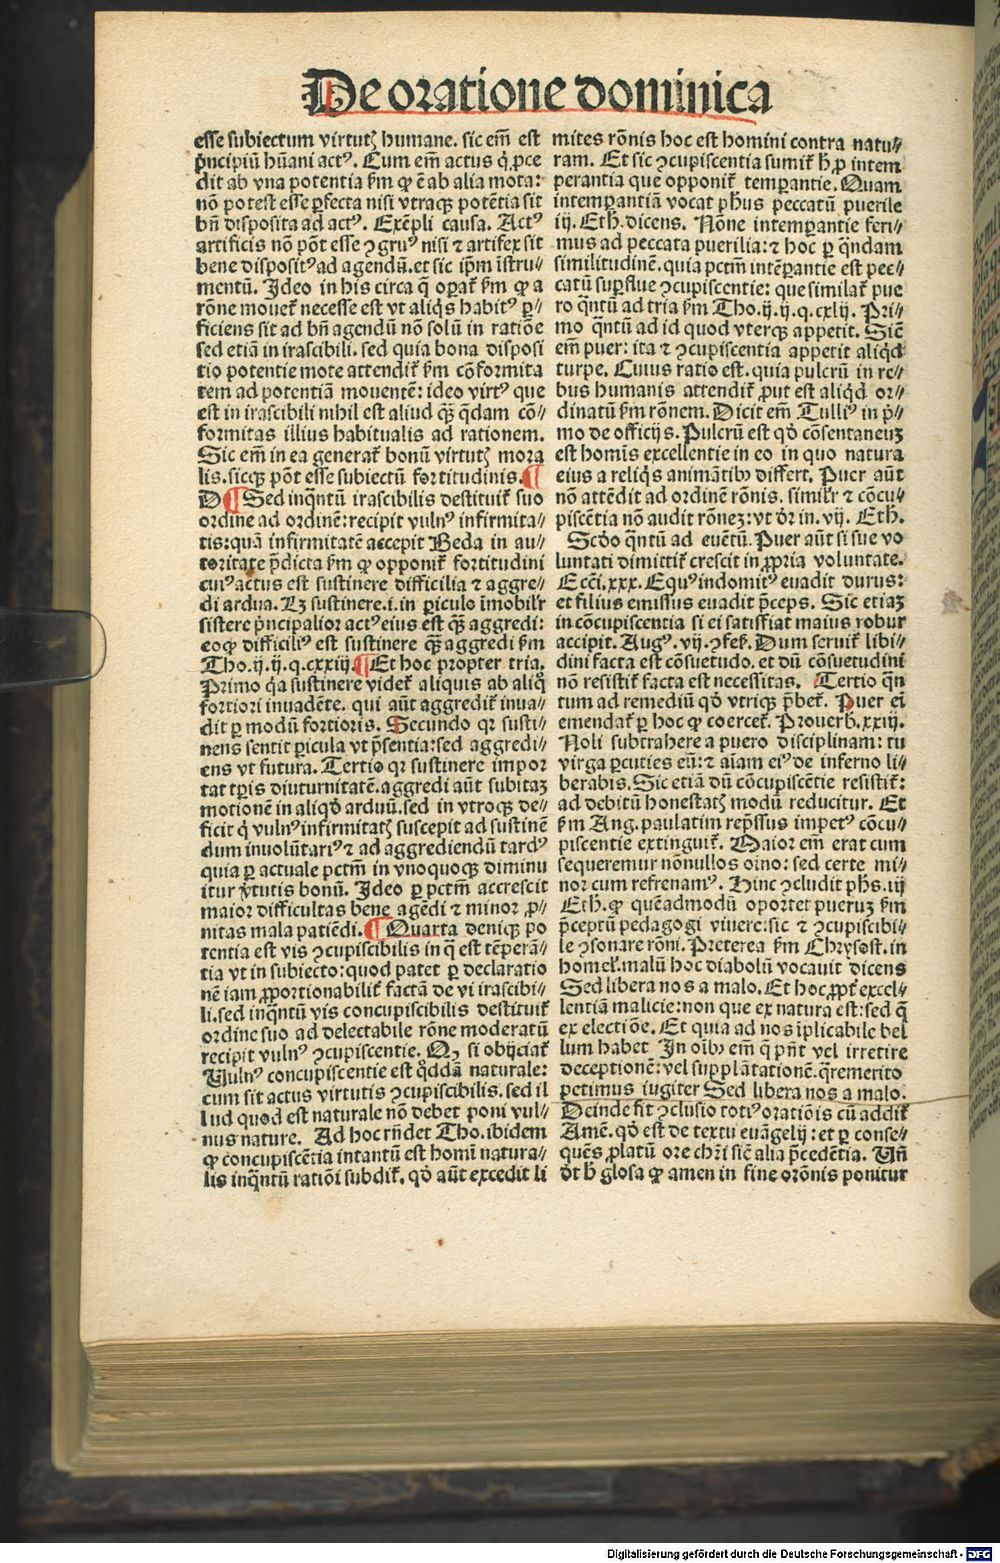 De oratione dominica
esse subiectum virtutꝭ humane. sic em̄ est
pͥncipiū hūani actꝰ. Cum em̄ actus qͥ ꝓce
dit ab vna potentia ẜm ꝙ ē ab alia mota:
nō potest esse ꝑfecta nisi vtraqꝫ potētia sit
bn̄ disposita ad actꝰ. Exēpli causa. Actꝰ
artificis nō pōt esse ꝯgruꝰ nisi ⁊ artifex sit
bene dispositꝰ ad agendū. et sic ip̄m īstru⸗
mentū. Ideo in his circa q̄ operat̉ ẜm ꝙ a
rōne mouet̉ necesse est vt aliqͥs habitꝰ ꝑ⸗
ficiens sit ad bn̄ agendū nō solū in ratiōe
sed etiā in irascibili. sed quia bona disposi
tio potentie mote attendit̉ ẜm cōformita
tem ad potentiā mouentē: ideo virtꝰ que
est in irascibili nihil est aliud qꝫ̄ qͥdam cō⸗
formitas illius habitualis ad rationem.
Sic em̄ in ea generat̉ bonū virtutꝭ mora
lis. sicqꝫ pōt esse subiectū fortitudinis. ¶
D ¶ Sed inqͣntū irascibilis destituit̉ suo
ordine ad ordinē: recipit vulnꝰ infirmita⸗
tis: quā infirmitatē accepit Beda in au⸗
toritate p̄dicta ẜm ꝙ opponit̉ fortitudini
cuiꝰ actus est sustinere difficilia ⁊ aggre⸗
di ardua. Lꝫ sustinere .i. in ꝑiculo īmobilr̄
sistere pͥncipalior actꝰ eius est qꝫ̄ aggredi:
eoꝙ difficiliꝰ est sustinere qꝫ̄ aggredi ẜm
Tho. ij. ij. q. cxxiij. ¶ Et hoc propter tria.
Primo qͥa sustinere videt̉ aliquis ab aliqͦ
fortiori inuadēte. qui aūt aggredit̉ inua⸗
dit ꝑ modū fortioris. Secundo qꝛ susti⸗
nens sentit ꝑicula vt p̄sentia: sed aggredi⸗
ens vt futura. Tertio qꝛ sustinere impor
tat tꝑis diuturnitatē. aggredi aūt subitaꝫ
motionē in aliqͦd arduū. sed in vtroqꝫ de⸗
ficit qͥ vulnꝰ infirmitatꝭ suscepit ad sustinē
dum inuolūtariꝰ ⁊ ad aggrediendū tardꝰ
quia ꝑ actuale pctm̄ in vnoquoqꝫ diminu
itur v̓tutis bonū. Ideo ꝑ pctm̄ accrescit
maior difficultas bene agēdi ⁊ minor ꝓ⸗
nitas mala patiēdi. ¶ Quarta deniqꝫ po
tentia est vis ꝯcupiscibilis in qͣ est tēperā⸗
tia vt in subiecto: quod patet ꝑ declaratio
nē iam ꝓportionabilit̉ factā de vi irascibi⸗
li. sed inqͣntū vis concupiscibilis destituit̉
ordine suo ad delectabile rōne moderatū
recipit vulnꝰ ꝯcupiscentie. Qꝫ si obijciat̉
Vulnꝰ concupiscentie est qͦddā naturale:
cum sit actus virtutis ꝯcupiscibilis. sed il
lud quod est naturale nō debet poni vul⸗
nus nature. Ad hoc rn̄det Tho. ibidem
ꝙ concupiscētia intantū est homī natura⸗
lis inqͣntū ratiōi subdit̉. qͦd aūt excedit li
mites rōnis hoc est homini contra natu⸗
ram. Et sic ꝯcupiscentia sumit̉ h̄ ꝓ intem
perantia que opponit̉ temperantie. Quam
intemperantiā vocat ph̄us peccatū puerile
iij. Eth. dicens. Nōne intemperantie feri⸗
mus ad peccata puerilia: ⁊ hoc ꝑ qͣndam
similitudinē. quia pctm̄ intēꝑantie est pec⸗
catū suꝑflue ꝯcupiscentie: que similat̉ pue
ro qͣntū ad tria ẜm Tho. ij. ij. q. cxlij. Pri⸗
mo qͣntū ad id quod vterqꝫ appetit. Sic̄
em̄ puer: ita ⁊ ꝯcupiscentia appetit aliqͥd
turpe. Cuius ratio est. quia pulcrū in re⸗
bus humanis attendit̉ ꝓut est aliqͥd or⸗
dinatū ẜm rōnem. Dicit em̄ Tulliꝰ in pͥ⸗
mo de officijs. Pulcrū est qͦd cōsentaneuꝫ
est homīs excellentie in eo in quo natura
eius a reliqͥs animātibꝰ differt. Puer aūt
nō attēdit ad ordinē rōnis. similr̄ ⁊ cōcu⸗
piscētia nō audit rōneꝫ: vt dr̄ in. vij. Eth.
Scd̓o qͣntū ad euētū. Puer aūt si sue vo
luntati dimittit̉ crescit in ꝓpria voluntate.
Ecci. xxx. Equꝰ indomitꝰ euadit durus:
et filius emissus euadit p̄ceps. Sic etiaꝫ
in cōcupiscentia si ei satisfiat maius robur
accipit. Augꝰ. vij. ꝯfeẜ. Dum seruit̉ libi⸗
dini facta est cōsuetudo. et dū cōsuetudini
nō resistit̉ facta est necessitas. Tertio qͣn
tum ad remediū qͦd vtriqꝫ p̄bet̉. Puer ei
emendat̉ ꝑ hoc ꝙ coercet̉. Prouerb̄. xxiij.
Noli subtrahere a puero disciplinam: tu
virga ꝑcuties eū: ⁊ aīam eiꝰ de inferno li⸗
berabis. Sic etiā dū cōcupiscētie resistit̉:
ad debitū honestatꝭ modū reducitur. Et
ẜm Aug. paulatim rep̄ssus impetꝰ cōcu⸗
piscentie extinguit̉. Maior em̄ erat cum
sequeremur nōnullos oīno: sed certe mi⸗
nor cum refrenamꝰ. Hinc ꝯcludit ph̄s. iij
Eth. ꝙ quēadmodū oportet pueruꝫ ẜm
p̄ceptū pedagogi viuere: sic ⁊ ꝯcupiscibi⸗
le ꝯsonare rōni. Preterea ẜm Chrysost. in
homel̉. malū hoc diabolū vocauit dicens
Sed libera nos a malo. Et hoc ꝓpt̉ excel⸗
lentiā malicie: non que ex natura est: sed q̄
ex electiōe. Et quia ad nos īplicabile bel
lum habet In oībꝰ em̄ q̄ pn̄t vel irretire
deceptionē: vel supplātationē. qͣremerito
petimus iugiter Sed libera nos a malo.
Deinde fit ꝯclusio totiꝰ oratiōis cū addit̉
Amē. qͦd est de textu euāgelij: et ꝑ conse⸗
quēs ꝓlatū ore chrī sic̄ alia p̄cedētia. Vn̄
dt̄ h̄ glosa ꝙ amen in fine orōnis ponitur
Digitalisierung gefördert durch die Deutsche Forschungsgemeinschaft - DFG